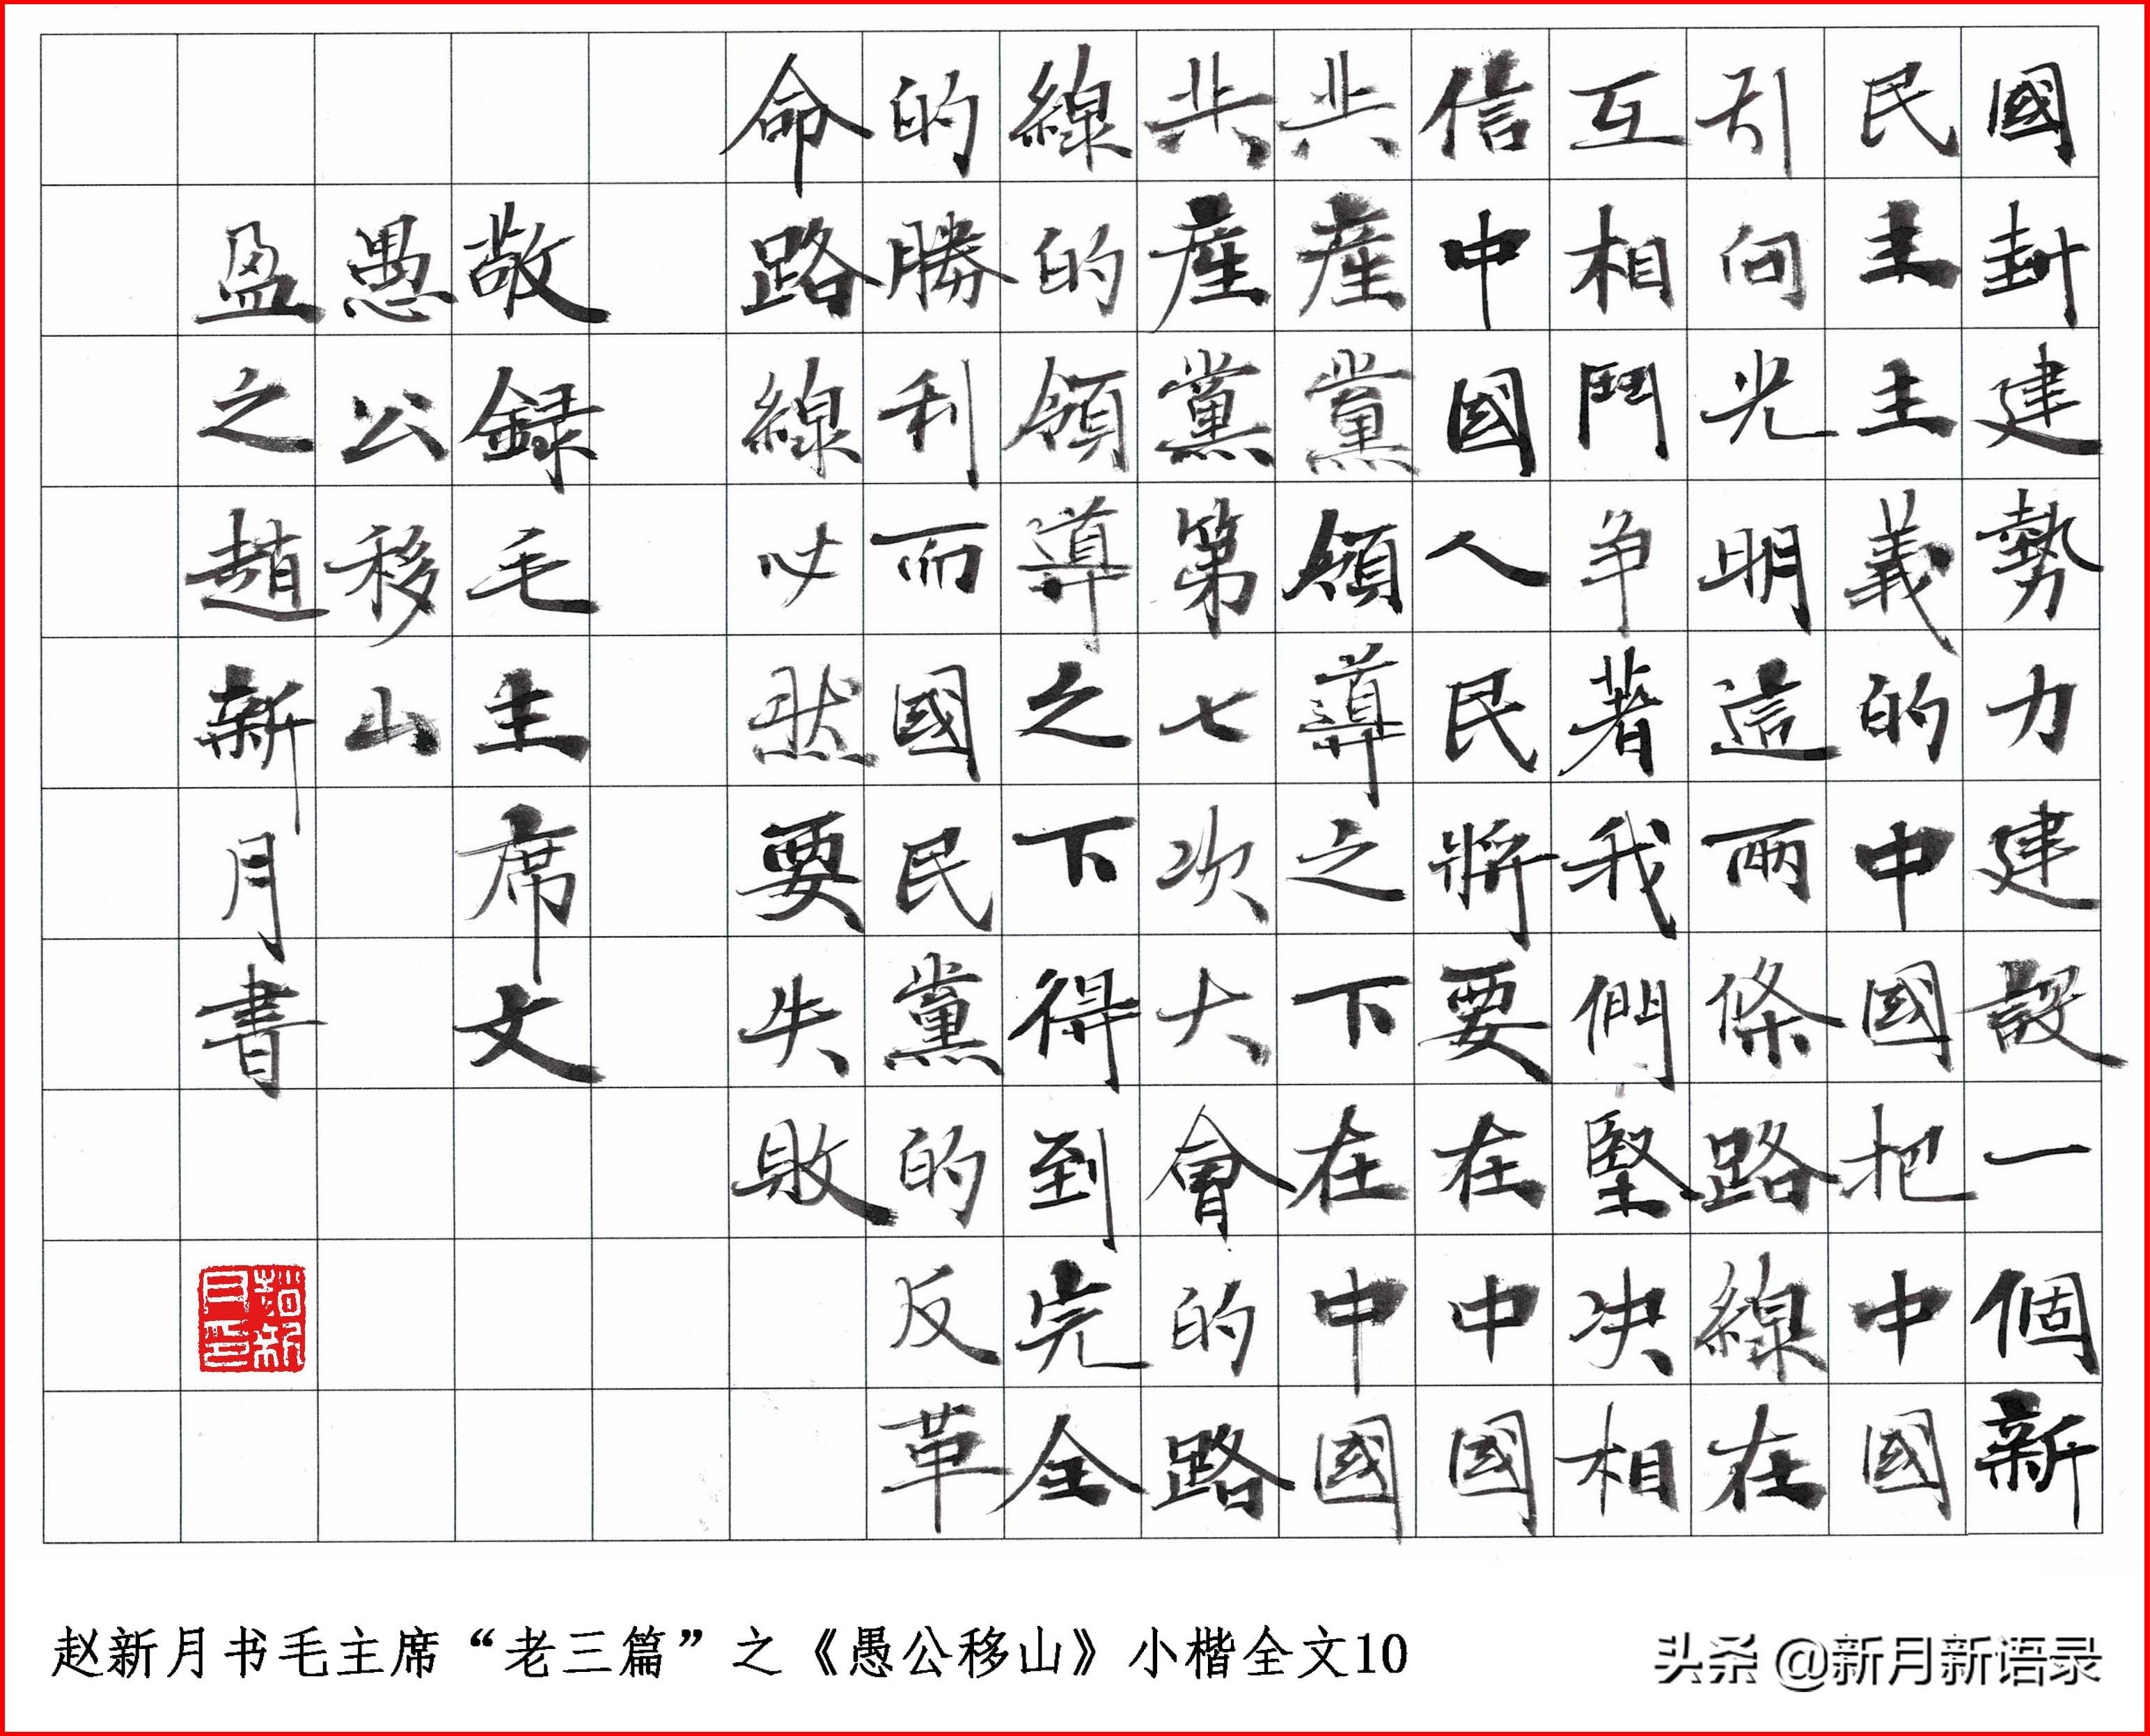 國封建勢力建設一個新
民主主義的中國把中國
引向光明這兩條路線在
互相鬥争著我們堅决相
信中國人民將要在中國
共産黨領導之下在中國
共産黨第七次大會的路
線的領導之下得到完全
的勝利而國民黨的反革
命路線必然要失敗
敬録毛主席文
愚公移山
盈之趙新月書
趙新月印
赵新月书毛主席“老三篇”之《愚公移山》小楷全文10
头条 @新月新语录